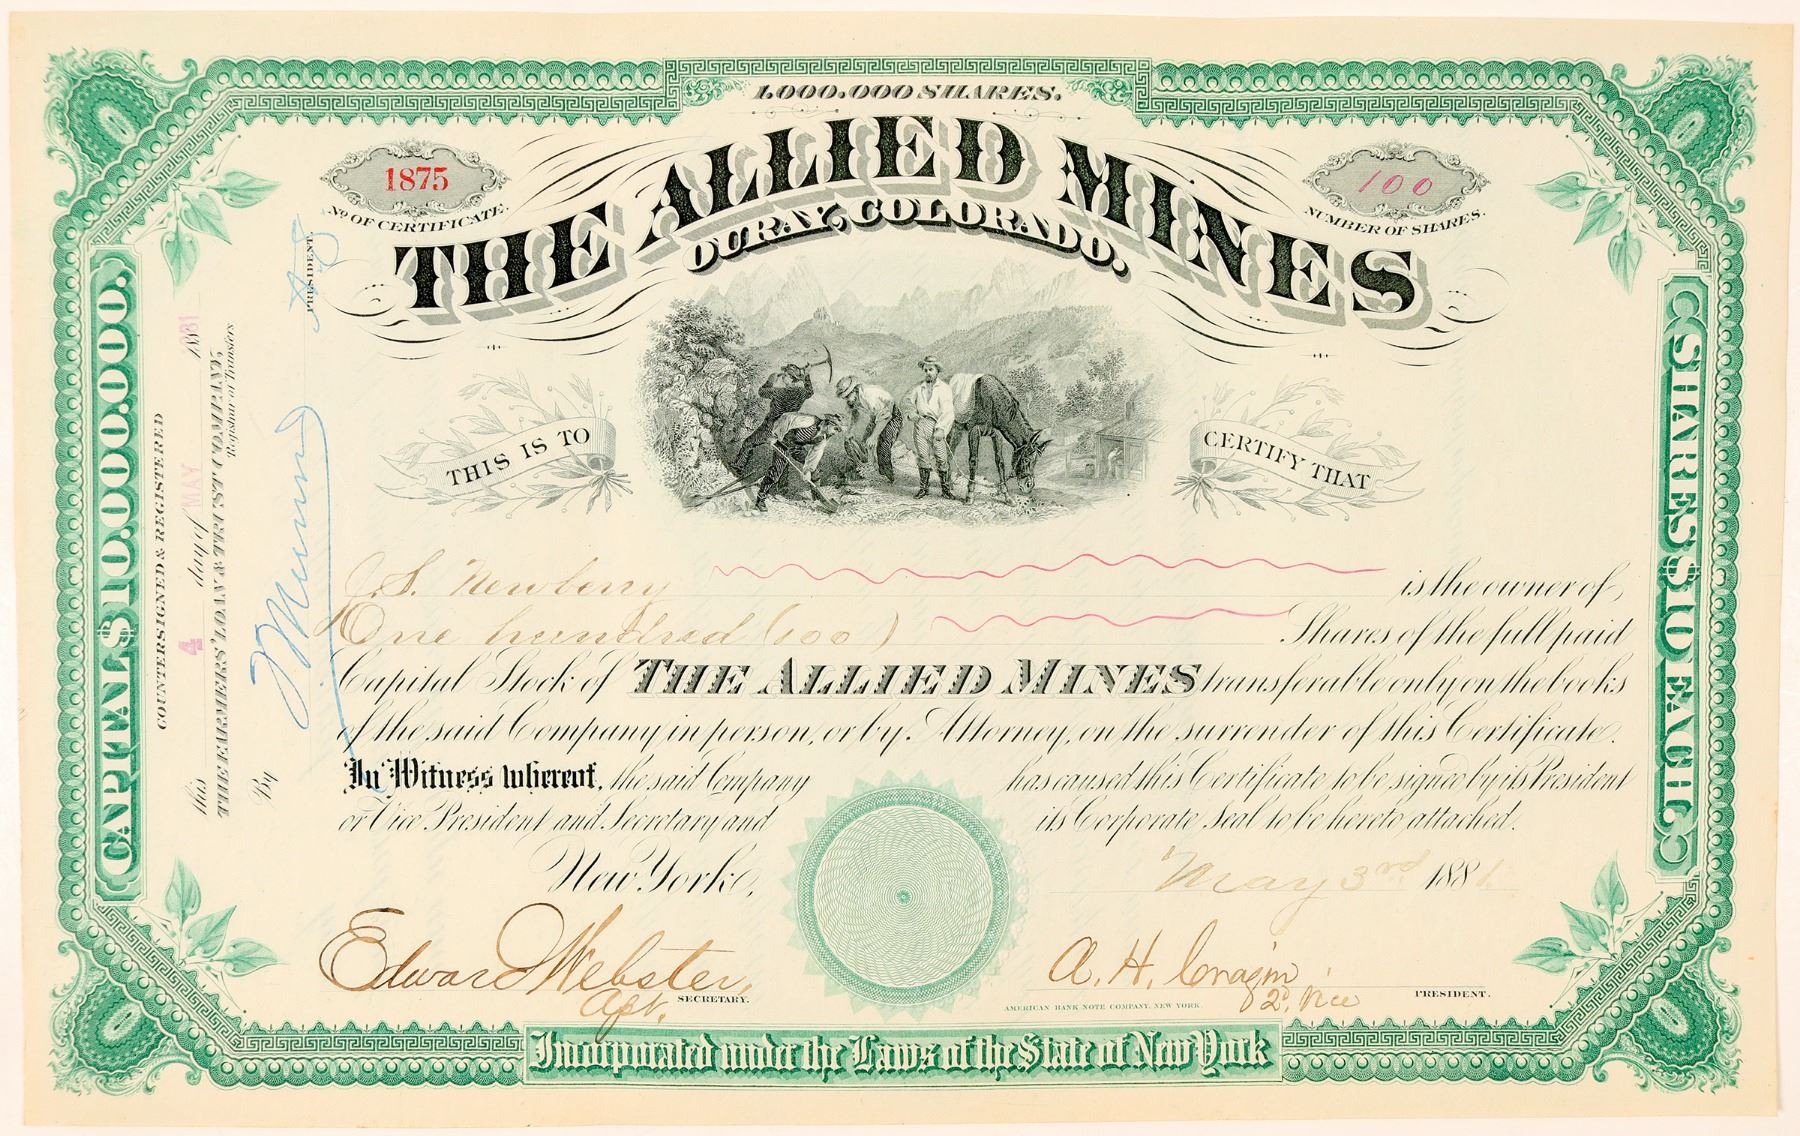 1,000,000 SHARES.
1875
Nº OF CERTIFICATE.
100
NUMBER OF SHARES.
THE ALLIED MINES
OURAY, COLORADO.
THIS IS TO
CERTIFY THAT
J. S. Newberry is the owner of
One hundred (100) Shares of the full paid
Capital Stock of THE ALLIED MINES transferable only on the books
of the said Company in person, or by Attorney, on the surrender of this Certificate.
In Witness whereof, the said Company has caused this Certificate to be signed by its President
or Vice President and Secretary and its Corporate Seal to be hereto attached.
New York, May 3rd 1881.
Edward Webster,
Ast. SECRETARY.
A. H. Cragin
2d. Vice PRESIDENT.
AMERICAN BANK NOTE COMPANY, NEW YORK.
Incorporated under the Laws of the State of New York
CAPITAL $10,000,000.
COUNTERSIGNED & REGISTERED
this 4 day of MAY 1881
THE FARMERS' LOAN & TRUST COMPANY,
Registrar of Transfers
By
PRESIDENT.
SHARES $10 EACH